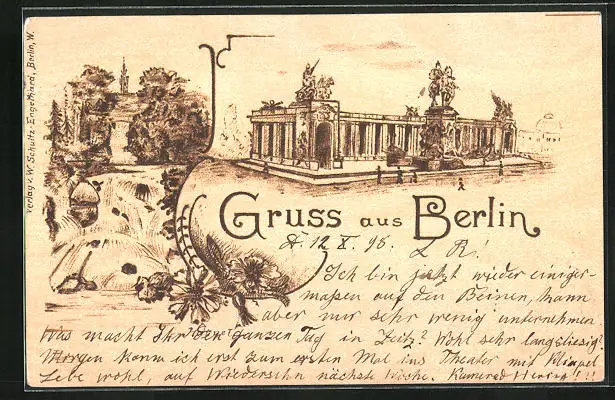 Verlag v. W. Schultz-Engelhard, Berlin, W.
Gruss aus Berlin
12 X. 96. L R!
Ich bin jetzt wieder einiger-
maßen auf den Beinen, kann
aber nur sehr wenig unternehmen
Was macht Ihr den ganzen Tag in Zeitz? Wohl sehr langstielig!
Morgen kann ich erst zum ersten Mal ins Theater mit
Lebe wohl, auf Wiedersehn nächste Woche. Kamerad !!!